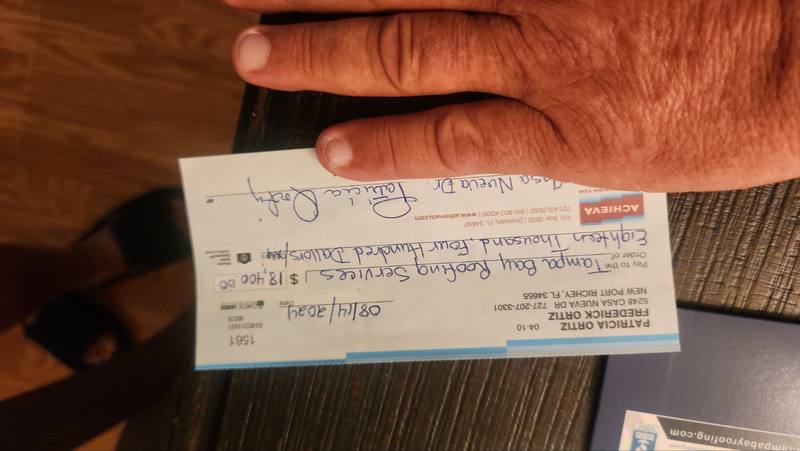 PATRICIA ORTIZ 04-10
FREDERICK ORTIZ
5248 CASA NUEVA DR 727-207-3301
NEW PORT RICHEY, FL 34655
1561
63-8031/2631
08/14/2024
Date
Pay to the
Order of Tampa Bay Roofing Services $ 18,400.00
Eighteen Thousand Four Hundred Dallors
ACHIEVA
P.O. Box 1500 | Dunedin, FL 34697
727.431.7680 | 941.907.4000 | www.achievacu.com
Casa Nueva Dr. Patricia Ortiz
mpabayroofing.com
BBB